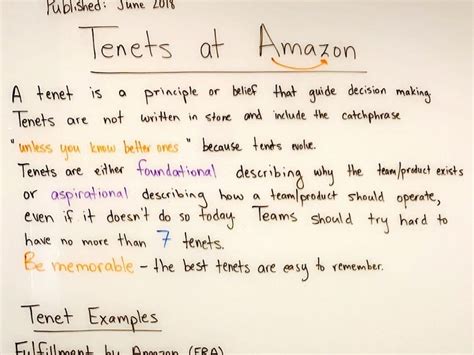 Published: June 2018
Tenets at Amazon
A tenet is a principle or belief that guide decision making
Tenets are not written in stone and include the catchphrase
"unless you know better ones" because tenets evolve.
Tenets are either foundational describing why the team/product exists
or aspirational describing how a team/product should operate,
even if it doesn't do so today. Teams should try hard to
have no more than 7 tenets.
Be memorable - the best tenets are easy to remember.
Tenet Examples
Fulfillment by Amazon (FBA)